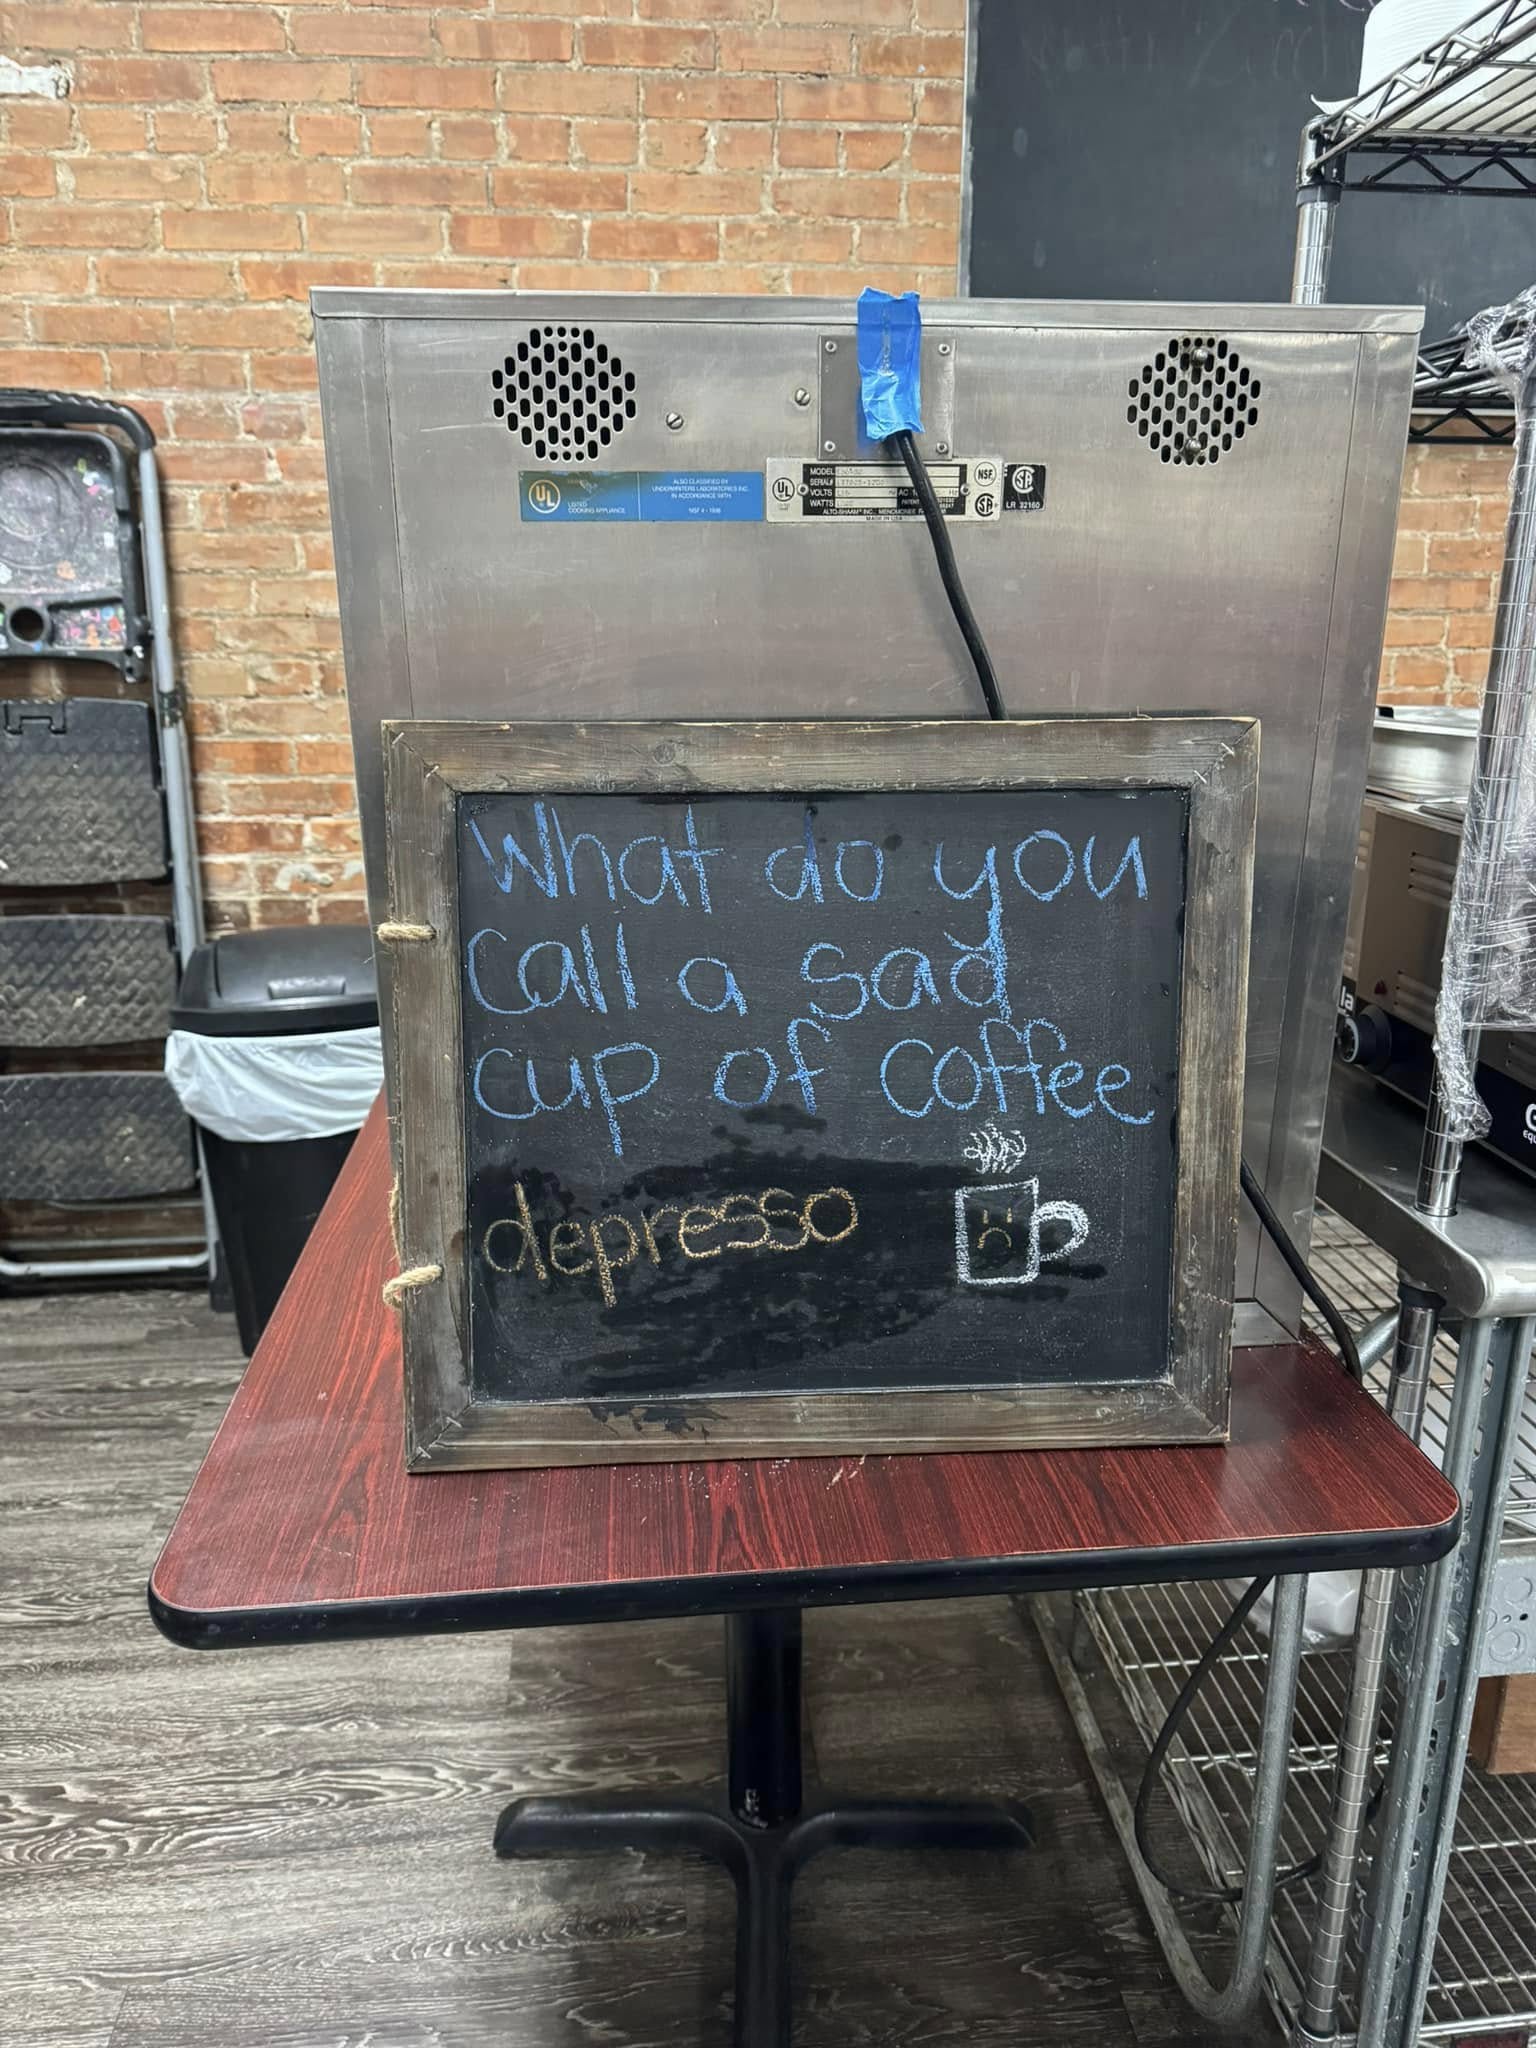 UL
LISTED
COOKING APPLIANCE
ALSO CLASSIFIED BY
UNDERWRITERS LABORATORIES INC.
IN ACCORDANCE WITH
UL
MODEL
SERIAL#
VOLTS
AC
WATTS
ALTO-SHAAM INC., MENOMONEE
MADE IN U.S.A.
NSF
LR 32160
What do you
call a sad
cup of coffee
depresso